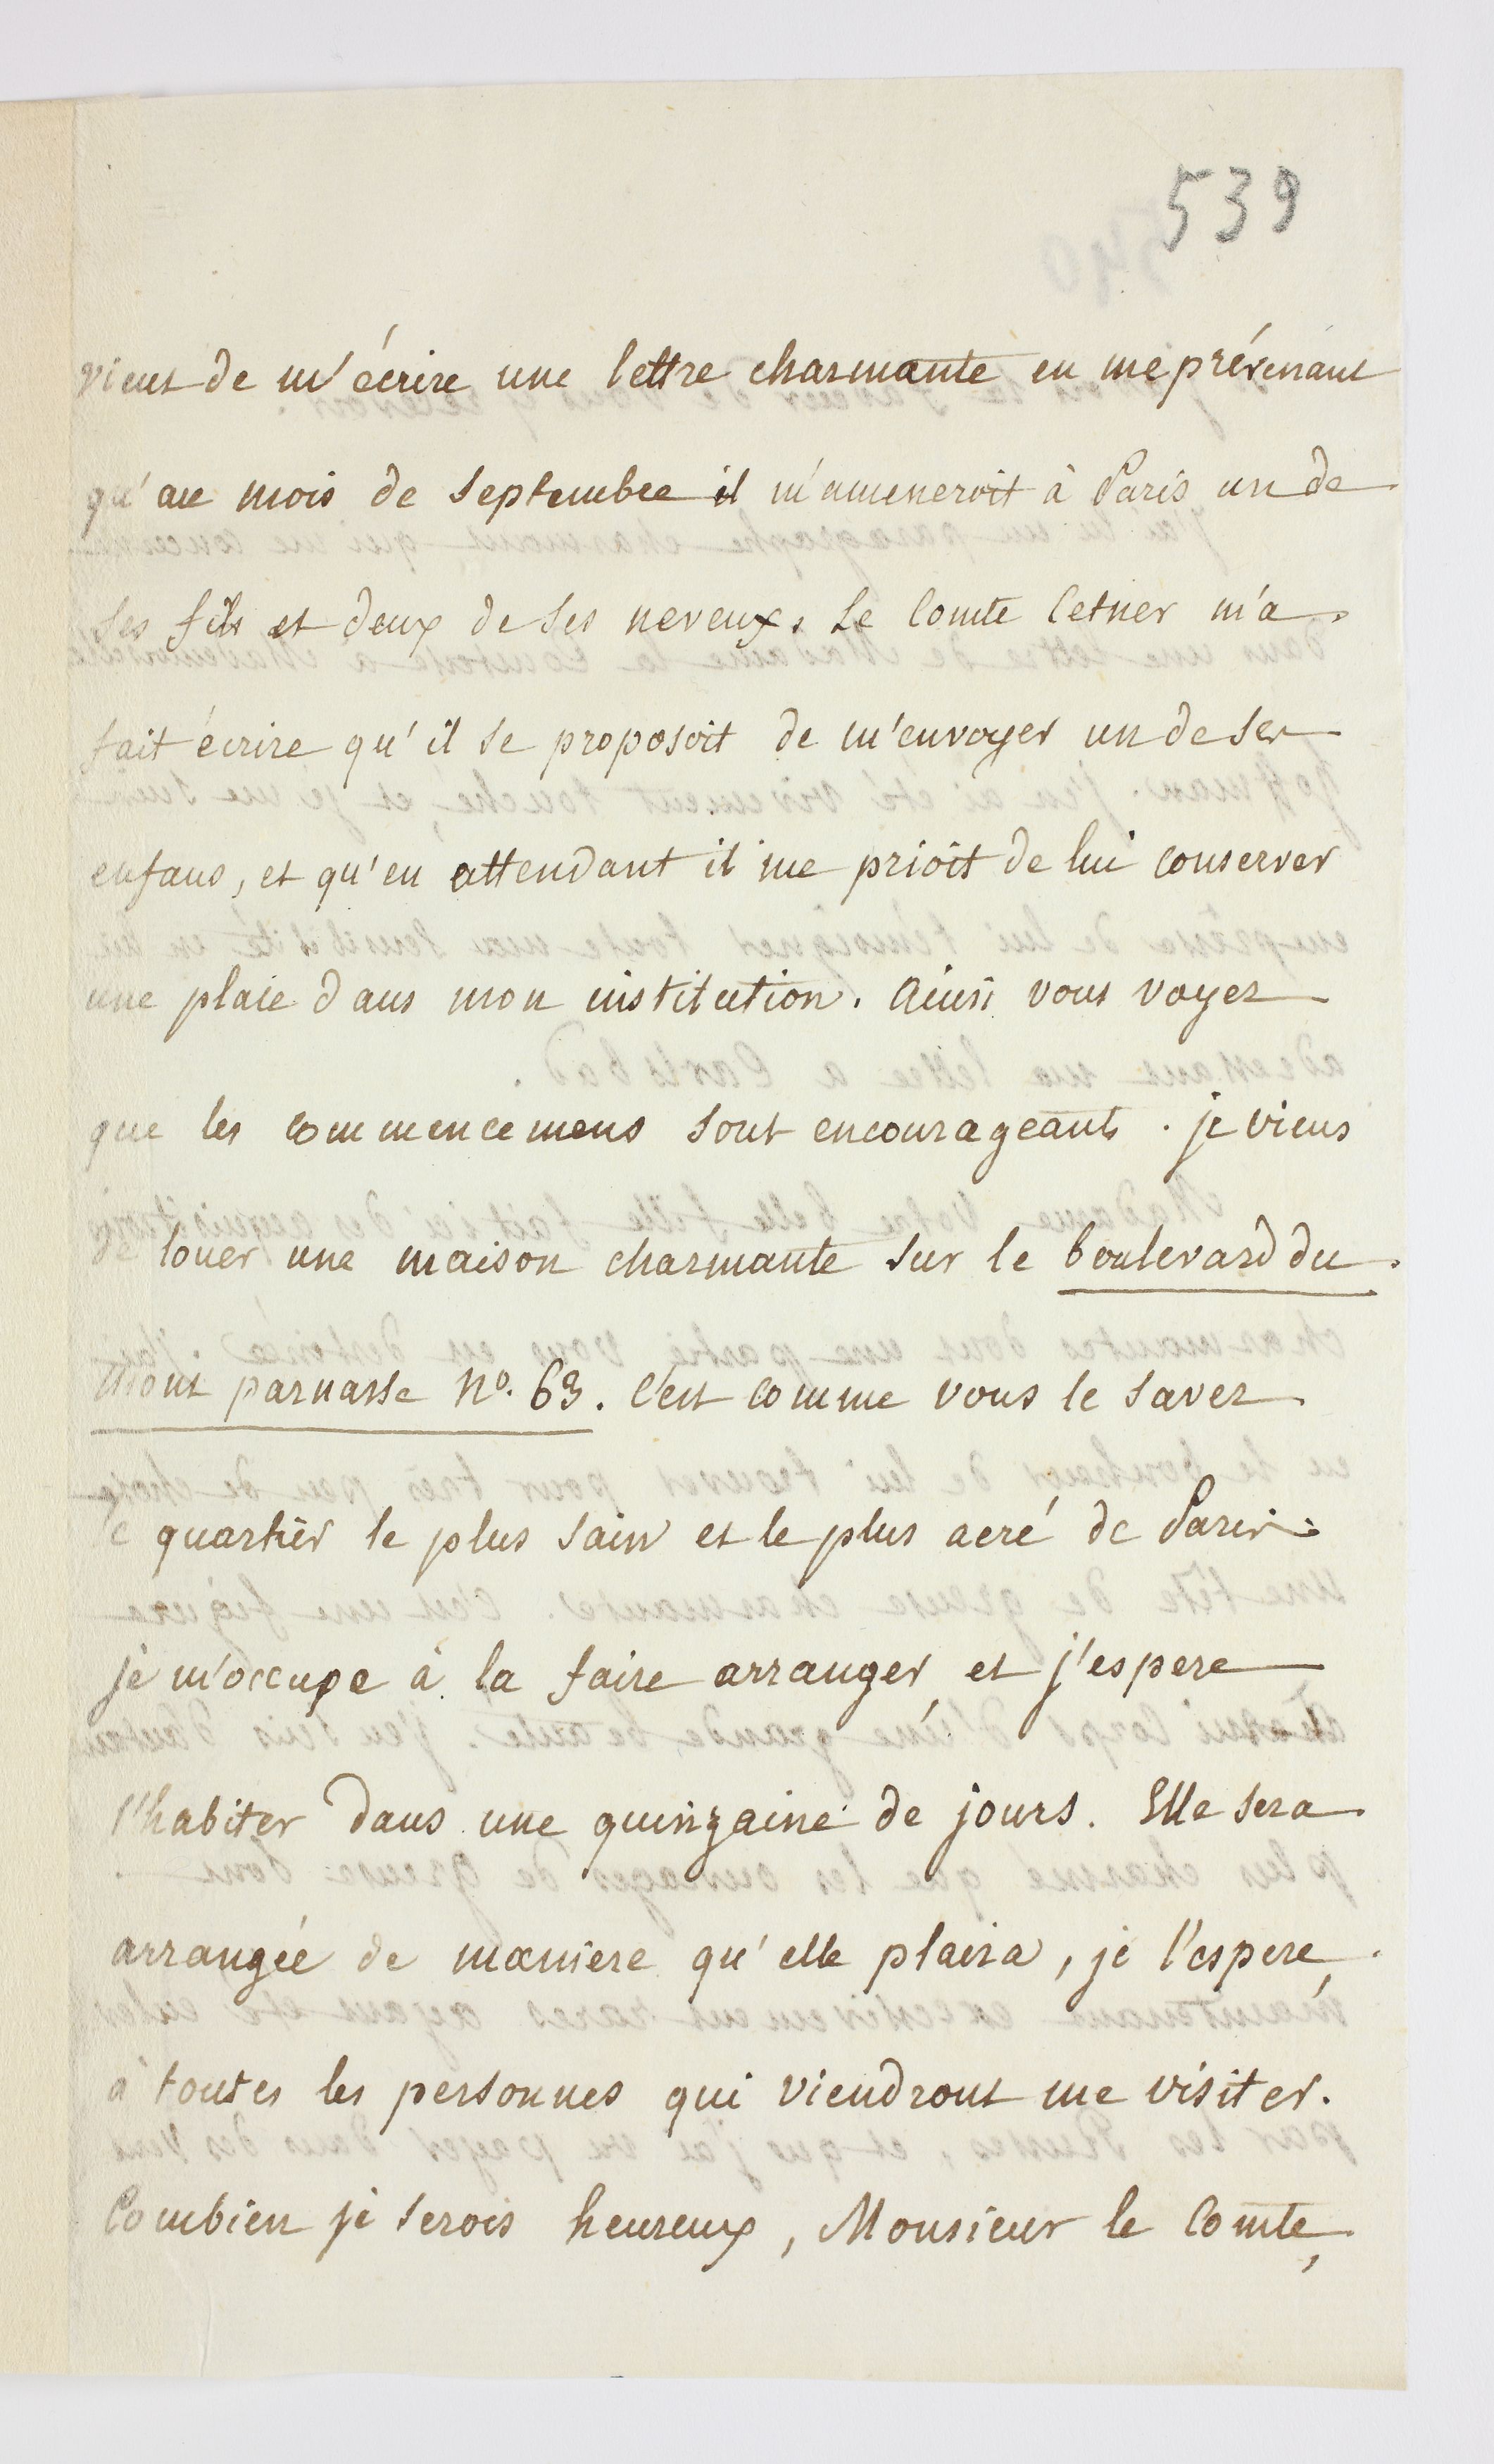 539
vient de m'écrire une lettre charmante en me prévenant
qu'au mois de Septembre il m'ameneroit à Paris un de
ses fils et deux de ses neveux. Le Comte Cetner m'a
fait écrire qu'il se proposoit de m'envoyer un de ses
enfans, et qu'en attendant il me prioit de lui conserver
une place dans mon institution. Ainsi vous voyez
que les commencemens sont encourageants. je viens
de louer une maison charmante sur le boulevard du
Mont parnasse No. 63. C'est comme vous le savez
le quartier le plus sain et le plus aeré de Paris.
je m'occupe à la faire arranger et j'espere
l'habiter dans une quinzaine de jours. Elle sera
arrangée de maniere qu'elle plaira, je l'espere,
à toutes les personnes qui viendront me visiter.
Combien je serois heureux, Monsieur le Comte,